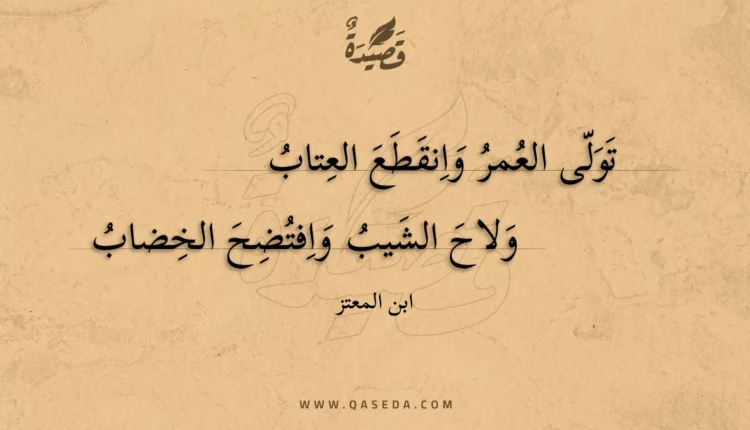 قَصِيْدَةٌ
تَوَلّى العُمرُ وَاِنقَطَعَ العِتابُ
وَلاحَ الشَيبُ وَاِفتُضِحَ الخِضابُ
ابن المعتز
WWW.QASEDA.COM